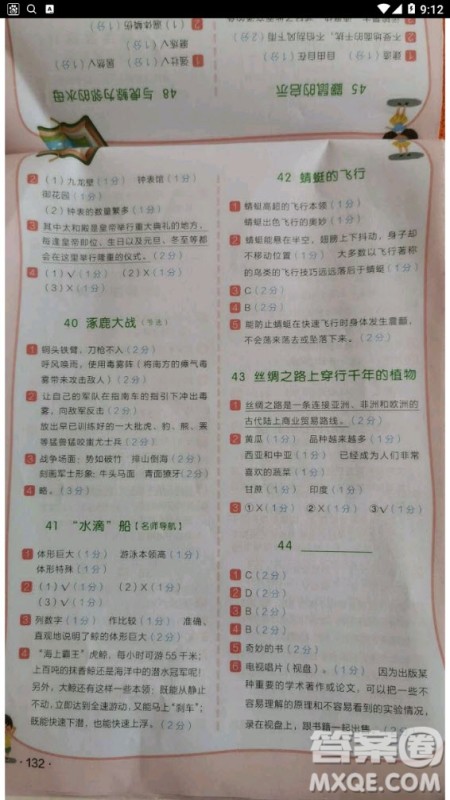 9:12
48 与虎鲸为邻的水母
45 鼹鼠的启示
2 (1)九龙壁(1分) 钟表馆(1分)
御花园(1分)
(2)钟表的数量繁多(1分)
3 其中太和殿是皇帝举行重大典礼的地方，
每逢皇帝即位、生日以及元旦、冬至等都
会在这里举行隆重的仪式。(2分)
4 (1)√(1分) (2)X(1分)
(3)X(1分)
40 涿鹿大战
1 铜头铁臂，刀枪不入(2分)
呼风唤雨，使用毒雾阵(将南方的瘴气毒
雾带来攻击敌人)(2分)
2 让自己的军队在指南车的指引下冲出毒
雾，向敌方反击(2分)
放出早已训练好的一大批虎、豹、熊、罴
等猛兽猛咬蚩尤士兵(2分)
3 战争场面：势如破竹 排山倒海(2分)
刻画军士形象：牛头马面 青面獠牙(2分)
4 略。(3分)
41 “水滴”船【名师导航】
1 体形巨大(1分) 游泳本领高(1分)
体形特殊(1分)
2 (1)√(1分) (2)X(1分)
(3)√(1分)
3 列数字(1分) 作比较(1分) 准确、
直观地说明了鲸的体形巨大(2分)
4 “海上霸王”虎鲸，每小时可游55千米；
上百吨的抹香鲸还是海洋中的潜水冠军呢！
另外，大鲸还有这样一些本领：既能从静止
不动，立即达到全速游动，又能马上“刹车”；
既能快速下潜，也能快速上浮。(2分)
·132·
42 蜻蜓的飞行
1 蜻蜓高超的飞行本领(1分)
蜻蜓出色飞行的奥妙(1分)
2 蜻蜓能悬在半空，翅膀上下抖动，身子却
不移动位置(1分) 大多数以飞行著称
的鸟类的飞行技巧远远落后于蜻蜓(1分)
3 C(2分)
4 B(2分)
5 能防止蜻蜓在快速飞行时身体发生震颤，
不会荡来荡去或坠落下来。(2分)
43 丝绸之路上穿行千年的植物
1 丝绸之路是一条连接亚洲、非洲和欧洲的
古代陆上商业贸易路线。(2分)
2 黄瓜(1分) 品种越来越多(1分)
西亚和中亚(1分) 已经成为人们非常
喜欢的蔬菜(1分)
甘蔗(1分) 印度(1分)
3 ①X(1分) ②X(1分) ③√(1分)
44
1 C(2分)
2 D(2分)
3 B(2分)
4 B(2分)
5 奇妙的书(2分)
6 电视唱片(视盘)。(1分) 因为出版某
种重要的学术著作或论文，可以把一些不
容易理解的原理和不容易看到的实验情况，
录在视盘上，跟书籍一起出售。(2分)
答案圈
MXQE.COM